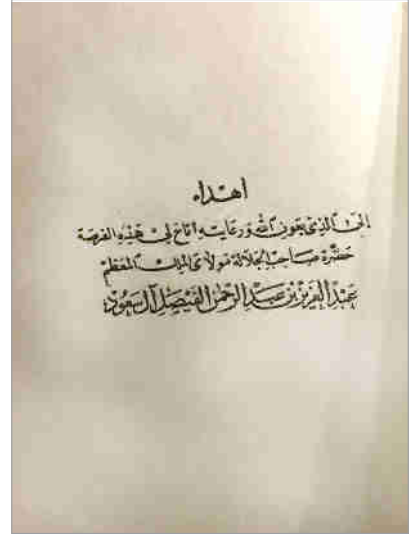 اهداء
إلى الذي بعون الله ورعايته اتاح لي هذه الفرصة
حضرة صاحب الجلالة مولاي الملك المعظم
عبد العزيز بن عبد الرحمن الفيصل آل سعود